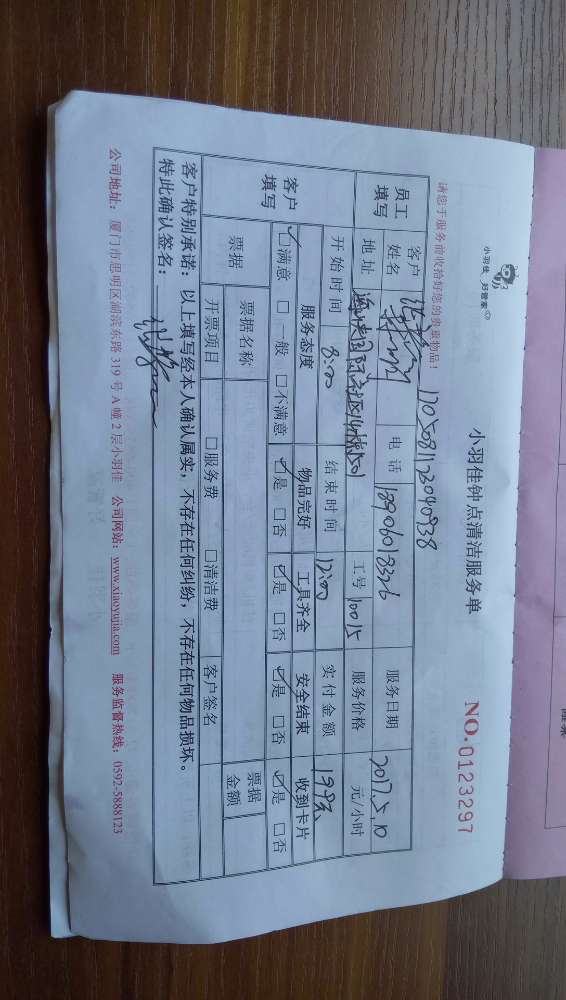 小羽佳 好管家
小羽佳钟点清洁服务单
NO.0123297
请您于服务前收拾好您的贵重物品!
员工填写
客户姓名 电话 服务日期 2017.5.10
地址 工号 10015 服务价格 元/小时
开始时间 8:00 结束时间 12:00 实付金额
客户填写
服务态度 物品完好 工具齐全 安全结束 收到卡片
☑满意 □一般 □不满意 ☑是 □否 ☑是 □否 ☑是 □否 ☑是 □否
票据 票据名称 票据金额
开票项目 □服务费 □清洁费 客户签名
客户特别承诺:以上填写经本人确认属实,不存在任何纠纷,不存在任何物品损坏。
特此确认签名:
公司地址:厦门市思明区湖滨东路 319 号 A 幢 2 层小羽佳 公司网站:www.xiaoyujia.com 服务监督热线:0592-5888123